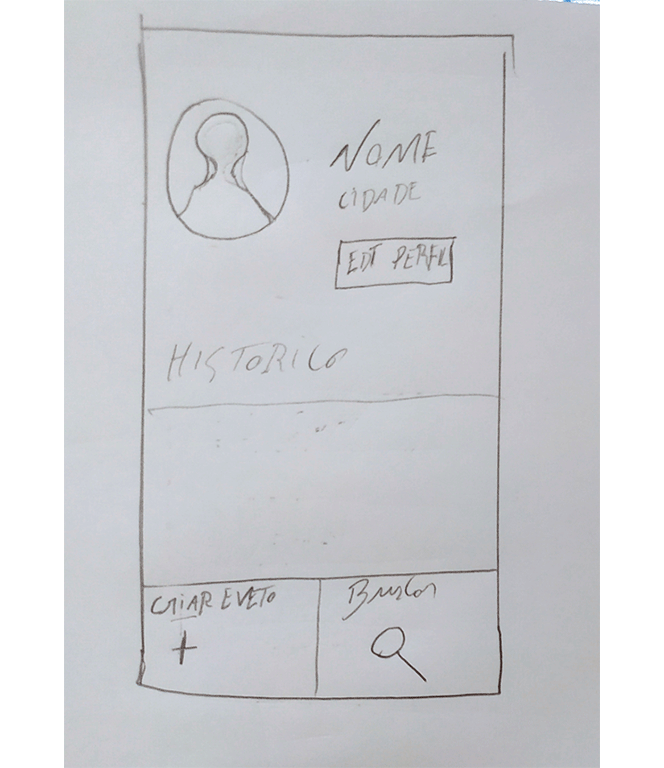 NOME
CIDADE
EDT PERFIL
HISTORICO
CRIAR EVETO
Buscar
+